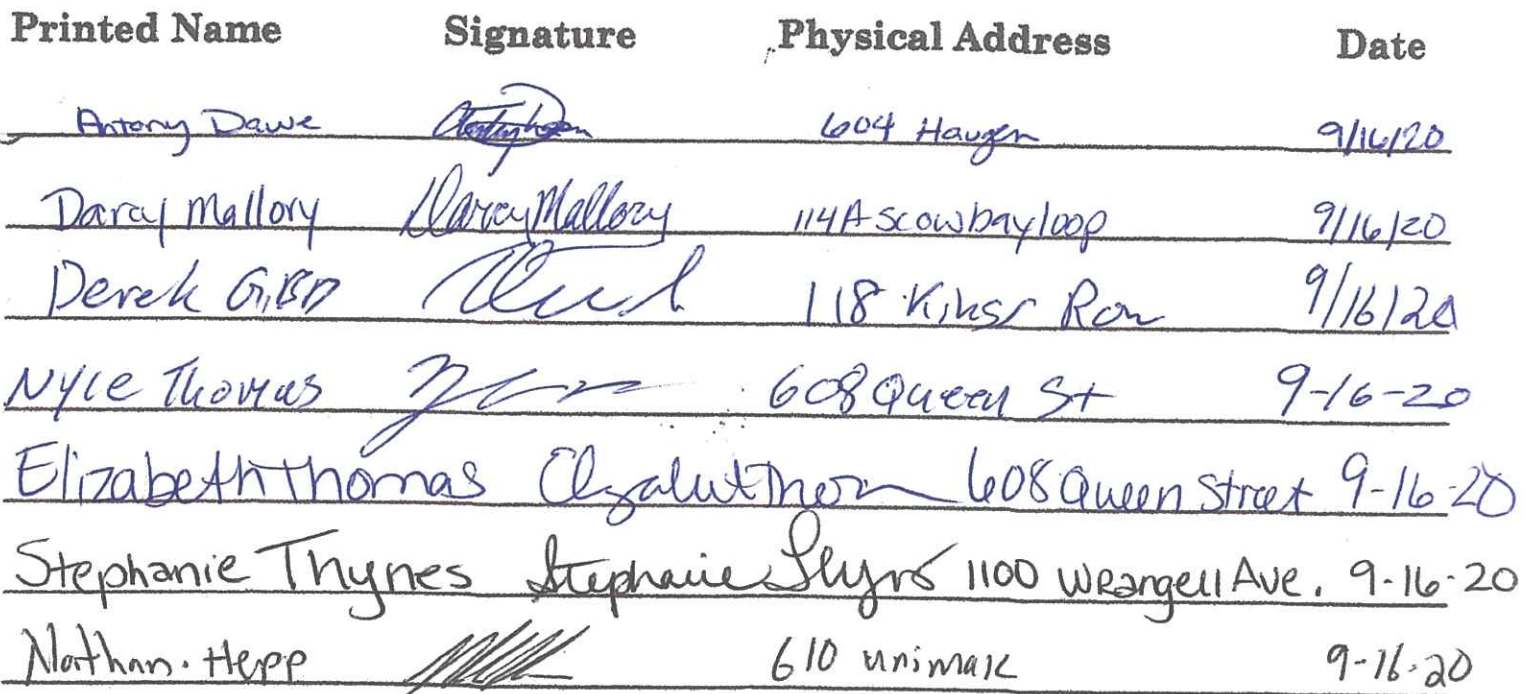 Printed Name Signature Physical Address Date
Antony Dawe 604 Haugen 9/16/20
Darcy Mallory Darcy Mallory 114A scow bay loop 9/16/20
Derek 118 Row 9/16/20
Nyle Thomas 608 Queen St 9-16-20
Elizabeth Thomas 608 Queen Street 9-16-20
Stephanie Thynes Stephanie Thynes 1100 Wrangell Ave. 9-16-20
Nathan Hepp 610 unimak 9-16-20